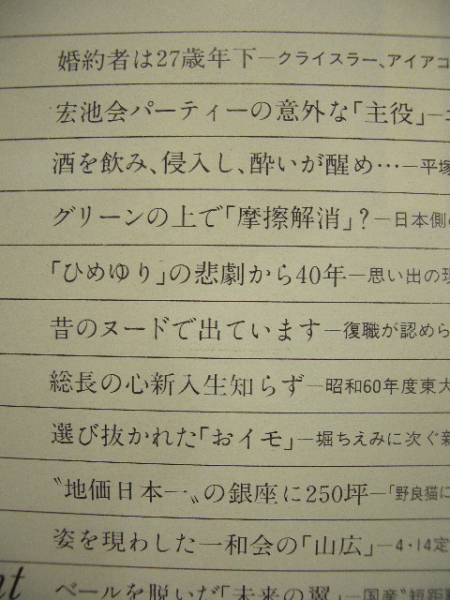 婚約者は27歳年下―クライスラー、アイアコ
宏池会パーティーの意外な「主役」―
酒を飲み、侵入し、酔いが醒め…―平塚
グリーンの上で「摩擦解消」?―日本側
「ひめゆり」の悲劇から40年―思い出の
昔のヌードで出ています―復職が認めら
総長の心新入生知らず―昭和60年度東大
選び抜かれた「おイモ」―堀ちえみに次ぐ新
〝地価日本一〟の銀座に250坪―「野良猫に
姿を現わした一和会の「山広」―4・14定
ベールを脱いだ「未来の翼」―国産〝短距離